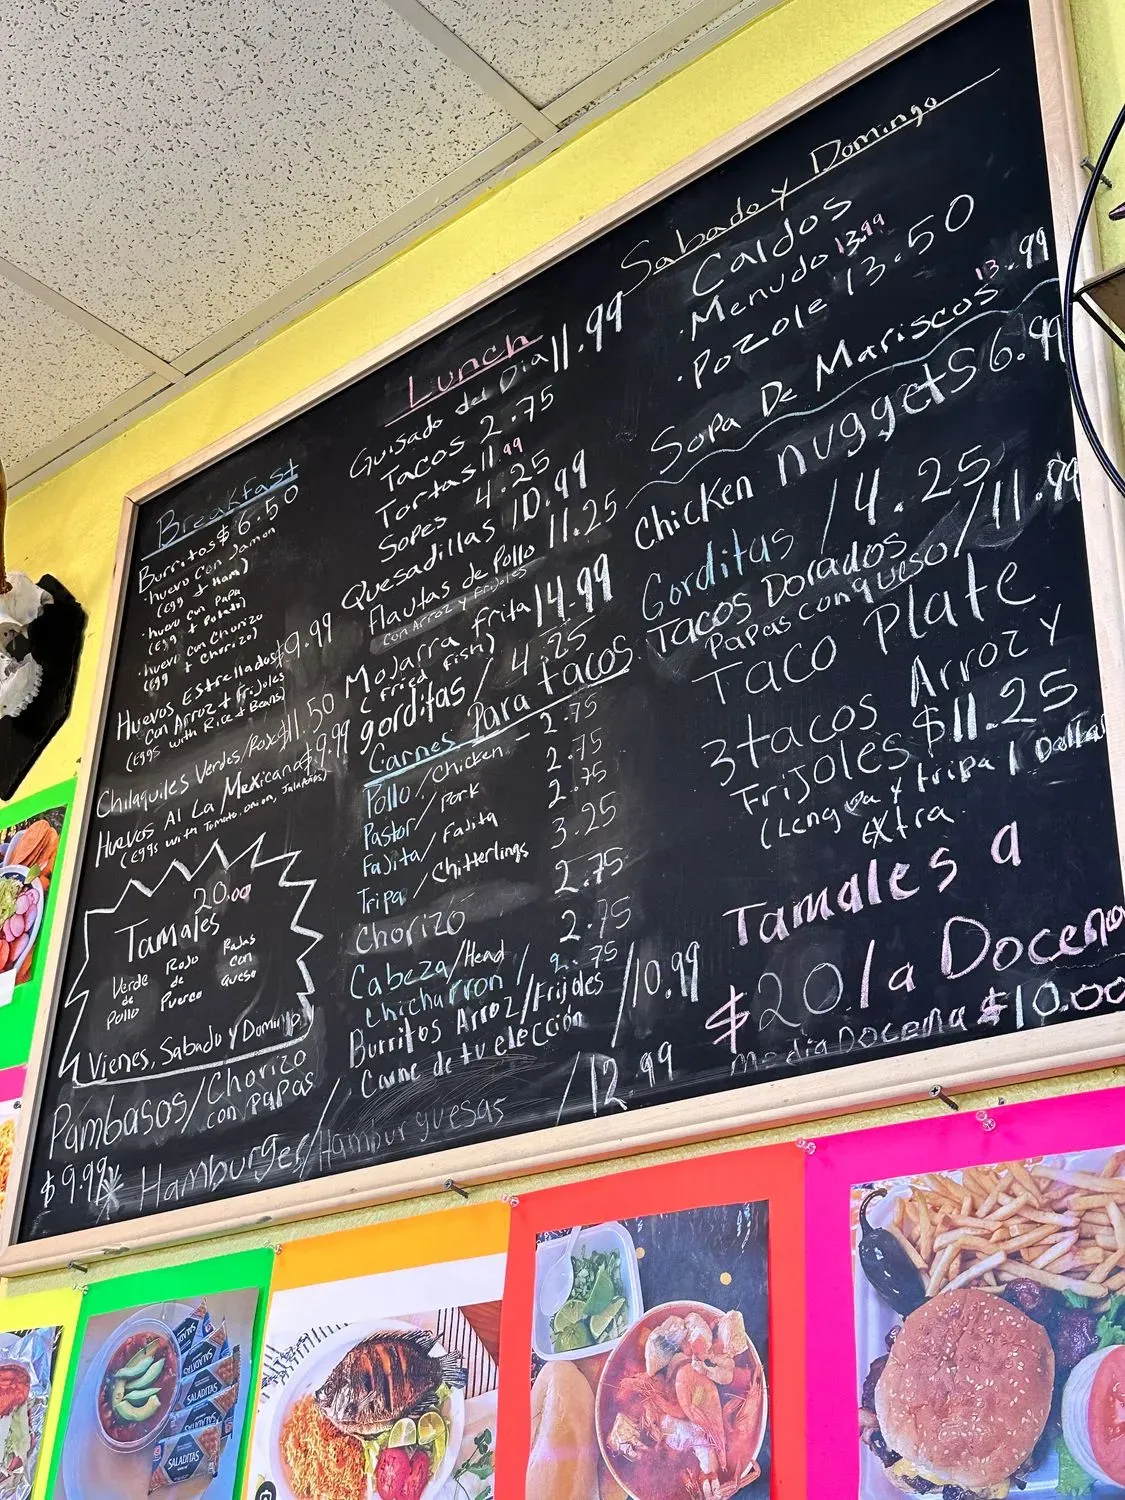 Breakfast
Burritos $6.50
· huevo con Jamon
(Egg & Ham)
· huevo con papa
(Egg & Potato)
· huevo con Chorizo
(Egg & Chorizo)
Huevos Estrellados $9.99
con Arroz & Frijoles
(Eggs with Rice & Beans)
Chilaquiles Verdes/Rojos $11.50
Huevos Al La Mexicana $9.99
(Eggs with Tomato, onion, Jalapeños)
20.00
Tamales
Verde de Pollo
Rojo de Puerco
Rajas con queso
Vienes, Sabado y Domingo
Pambasos/Chorizo con papas
$9.99
Hamburger/Hamburguesas /12.99
Lunch
Guisado del Dia 11.99
Tacos 2.75
Tortas 11.99
Sopes 4.25
Quesadillas 10.99
Flautas de Pollo 11.25
con Arroz y Frijoles
Mojarra frita 14.99
(fried fish)
gorditas / 4.25
Carnes Para tacos
Pollo/Chicken - 2.75
Pastor/Pork 2.75
Fajita/Fajita 2.75
Tripa/Chitterlings 3.25
Chorizo 2.75
Cabeza/Head 2.75
Chicharron / 2.75
Burritos Arroz/Frijoles /10.99
Carne de tu elección
Sabado y Domingo
Caldos
· Menudo 13.99
· Pozole 13.50
Sopa De Mariscos 13.99
Chicken nuggets 6.99
Gorditas / 4.25
Tacos Dorados /11.99
Papas con queso
Taco Plate
3 tacos Arroz y
Frijoles $11.25
(Lengua y tripa 1 Dollar
Extra
Tamales a
$20/a Docena
Media Docena $10.00
SALADITAS
SALADITAS
SALADITAS
SALADITAS